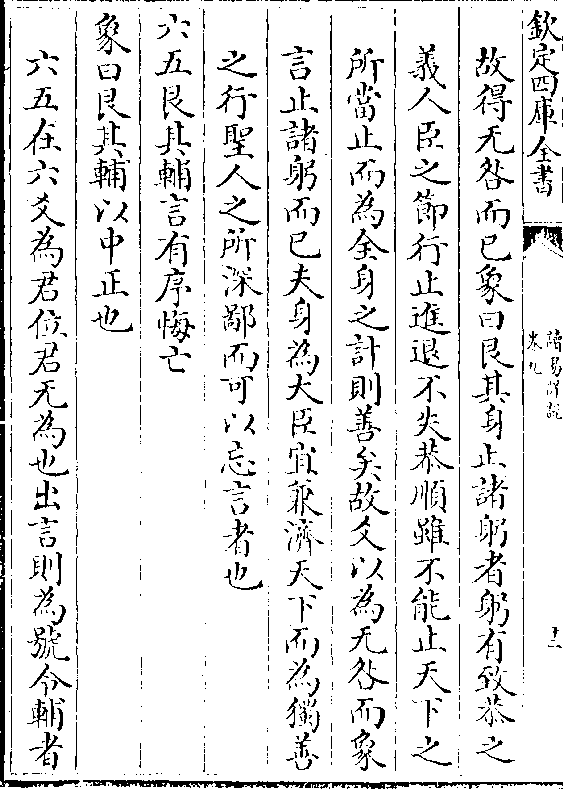 欽定四庫全書
讀易詳説
卷九
十一
故得无咎而已象曰艮其身止諸躬者躬有致恭之
義人臣之節行止進退不失恭順雖不能止天下之
所當止而為全身之計則善矣故爻以為无咎而象
言止諸躬而已夫身為大臣宜兼濟天下而為獨善
之行聖人之所深鄙而可以忘言者也
六五艮其輔言有序悔亡
象曰艮其輔以中正也
六五在六爻為君位君无為也出言則為號令輔者